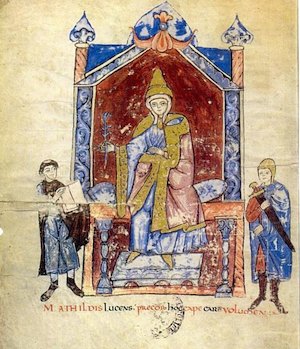 MATHILDIS LUCENS. PRECOR HOC CAPE CARA VOLUMEN.